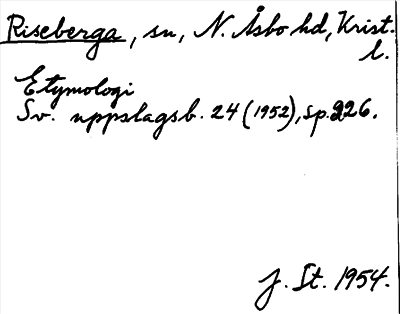 Riseberga, sn, N. Åsbo hd, Krist.
l.
Etymologi
Sv. uppslagsb. 24 (1952), sp. 226.
J. St. 1954.